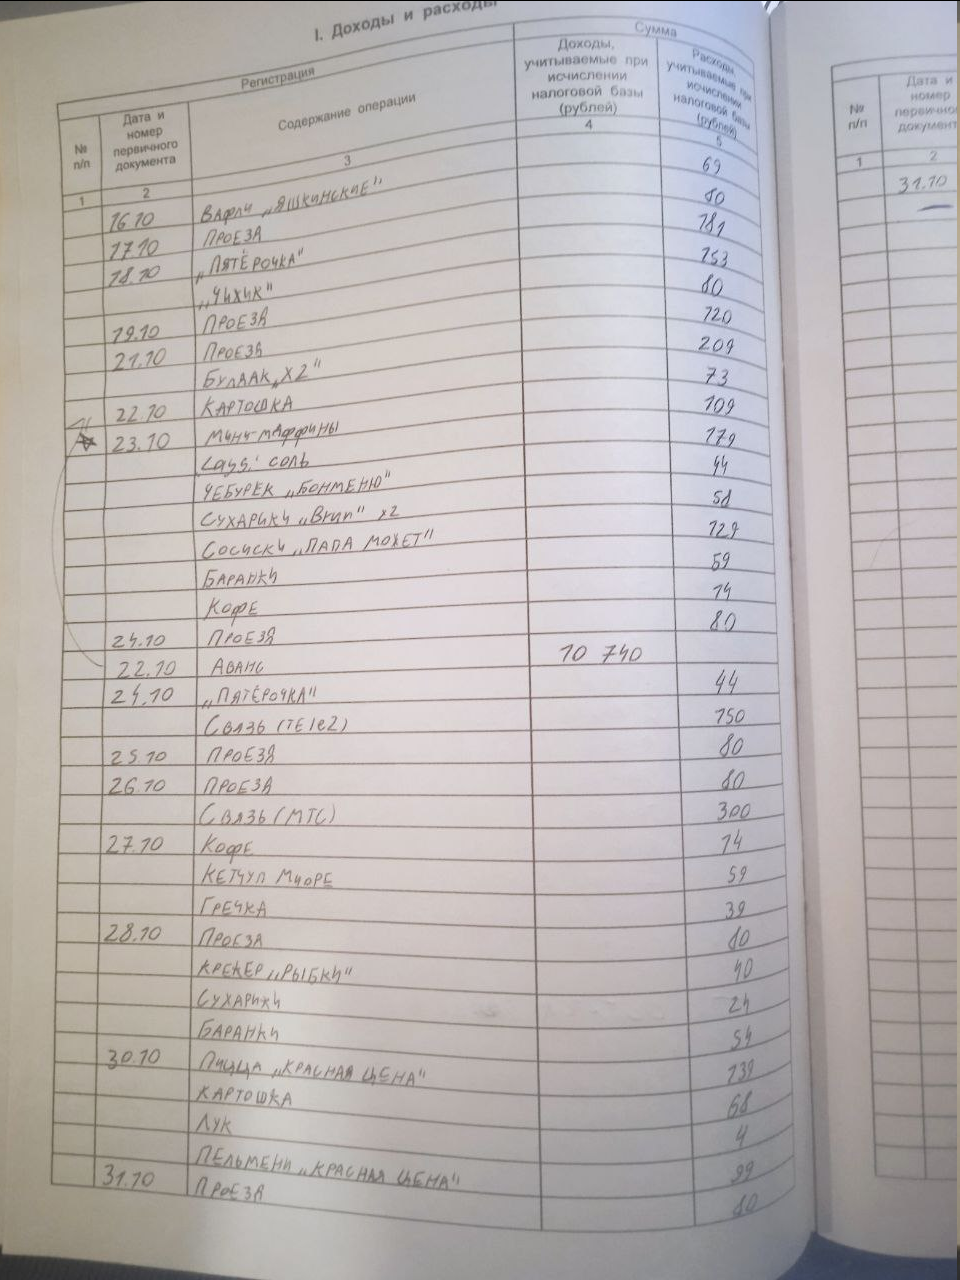 I. Доходы и расходы
Регистрация Сумма
№ п/п Дата и номер первичного документа Содержание операции Доходы, учитываемые при исчислении налоговой базы (рублей) Расходы, учитываемые при исчислении налоговой базы (рублей)
1 2 3 4 5
16.10 Вафли „Яшкинские" 69
17.10 Проезд 80
18.10 „Пятёрочка" 181
„Чижик" 153
19.10 Проезд 80
21.10 Проезд 120
Булдак „х2" 209
22.10 Картошка 73
23.10 Мини-маффины 109
Lays: соль 179
Чебурек „Бонменю" 44
Сухарики „Brun" х2 58
Сосиски „Папа может" 129
Баранки 59
Кофе 14
24.10 Проезд 80
22.10 Аванс 10 740
24.10 „Пятёрочка" 44
Связь (Tele2) 150
25.10 Проезд 80
26.10 Проезд 80
Связь (МТС) 300
27.10 Кофе 14
Кетчуп Мидре 59
Гречка 39
28.10 Проезд 80
Крекер „Рыбки" 40
Сухарики 24
Баранки 54
30.10 Пицца „Красная цена" 139
Картошка 68
Лук 4
Пельмени „Красная цена" 99
31.10 Проезд 80
№ п/п Дата и номер
1 2
31.10